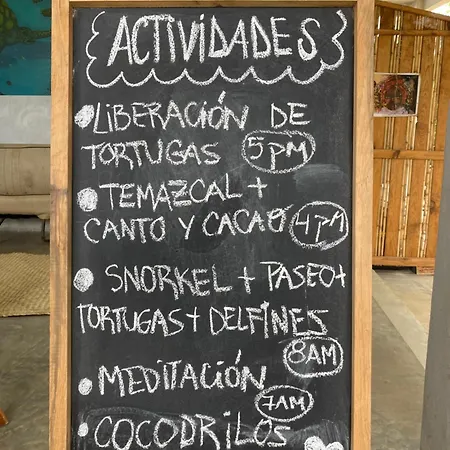 ACTIVIDADES
LIBERACIÓN DE
TORTUGAS 5PM
TEMAZCAL +
CANTO Y CACAO 4PM
SNORKEL + PASEO +
TORTUGAS + DELFINES
8AM
MEDITACIÓN
7AM
COCODRILOS